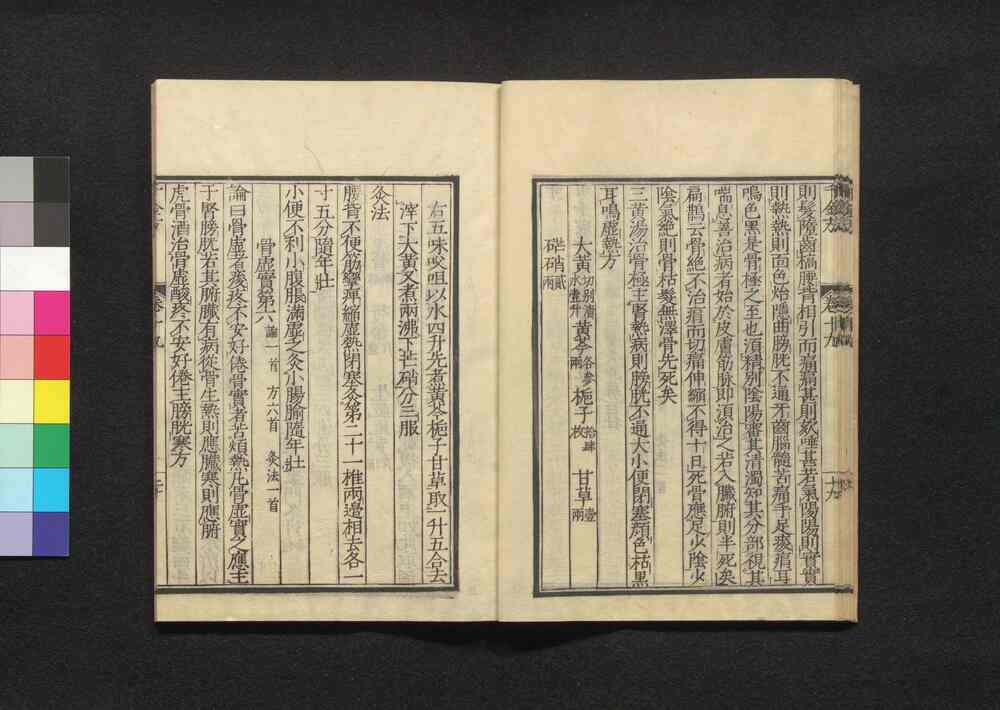 則髮墮齒槁腰背相引而痛痛甚則欬唾甚若氣陽陽則實實
則熱熱則面色炲隱曲膀胱不通牙齒腦髓苦痛手足痠痟耳
鳴色黑是骨極之至也須精別陰陽審其清濁知其分部視其
喘息善治病者始於皮膚筋脉即須治之若入臟腑則半死矣
扁鵲云骨絕不治痟而切痛伸縮不得十日死骨應足少陰少
陰氣絕則骨枯髮無澤骨先死矣
三黃湯治骨極主腎熱病則膀胱不通大小便閉塞顏色枯黑
耳鳴虛熱方
大黃切別漬水壹升 黃芩各參兩 梔子拾肆枚 甘草壹兩
芒硝貳兩
右五味㕮咀以水四升先煮黃芩梔子甘草取一升五合去
滓下大黃又煮兩沸下芒硝分三服
灸法
腰背不便筋攣痹縮虛熱閉塞灸第二十一椎兩邊相去各一
寸五分隨年壯
小便不利小腹脹滿虛乏灸小腸腧隨年壯
骨虛實第六 論一首 方六首 灸法一首
論曰骨虛者痠疼不安好倦骨實者苦煩熱凡骨虛實之應主
于腎膀胱若其腑臟有病從骨生熱則應臟寒則應腑
虎骨酒治骨虛酸疼不安好倦主膀胱寒方